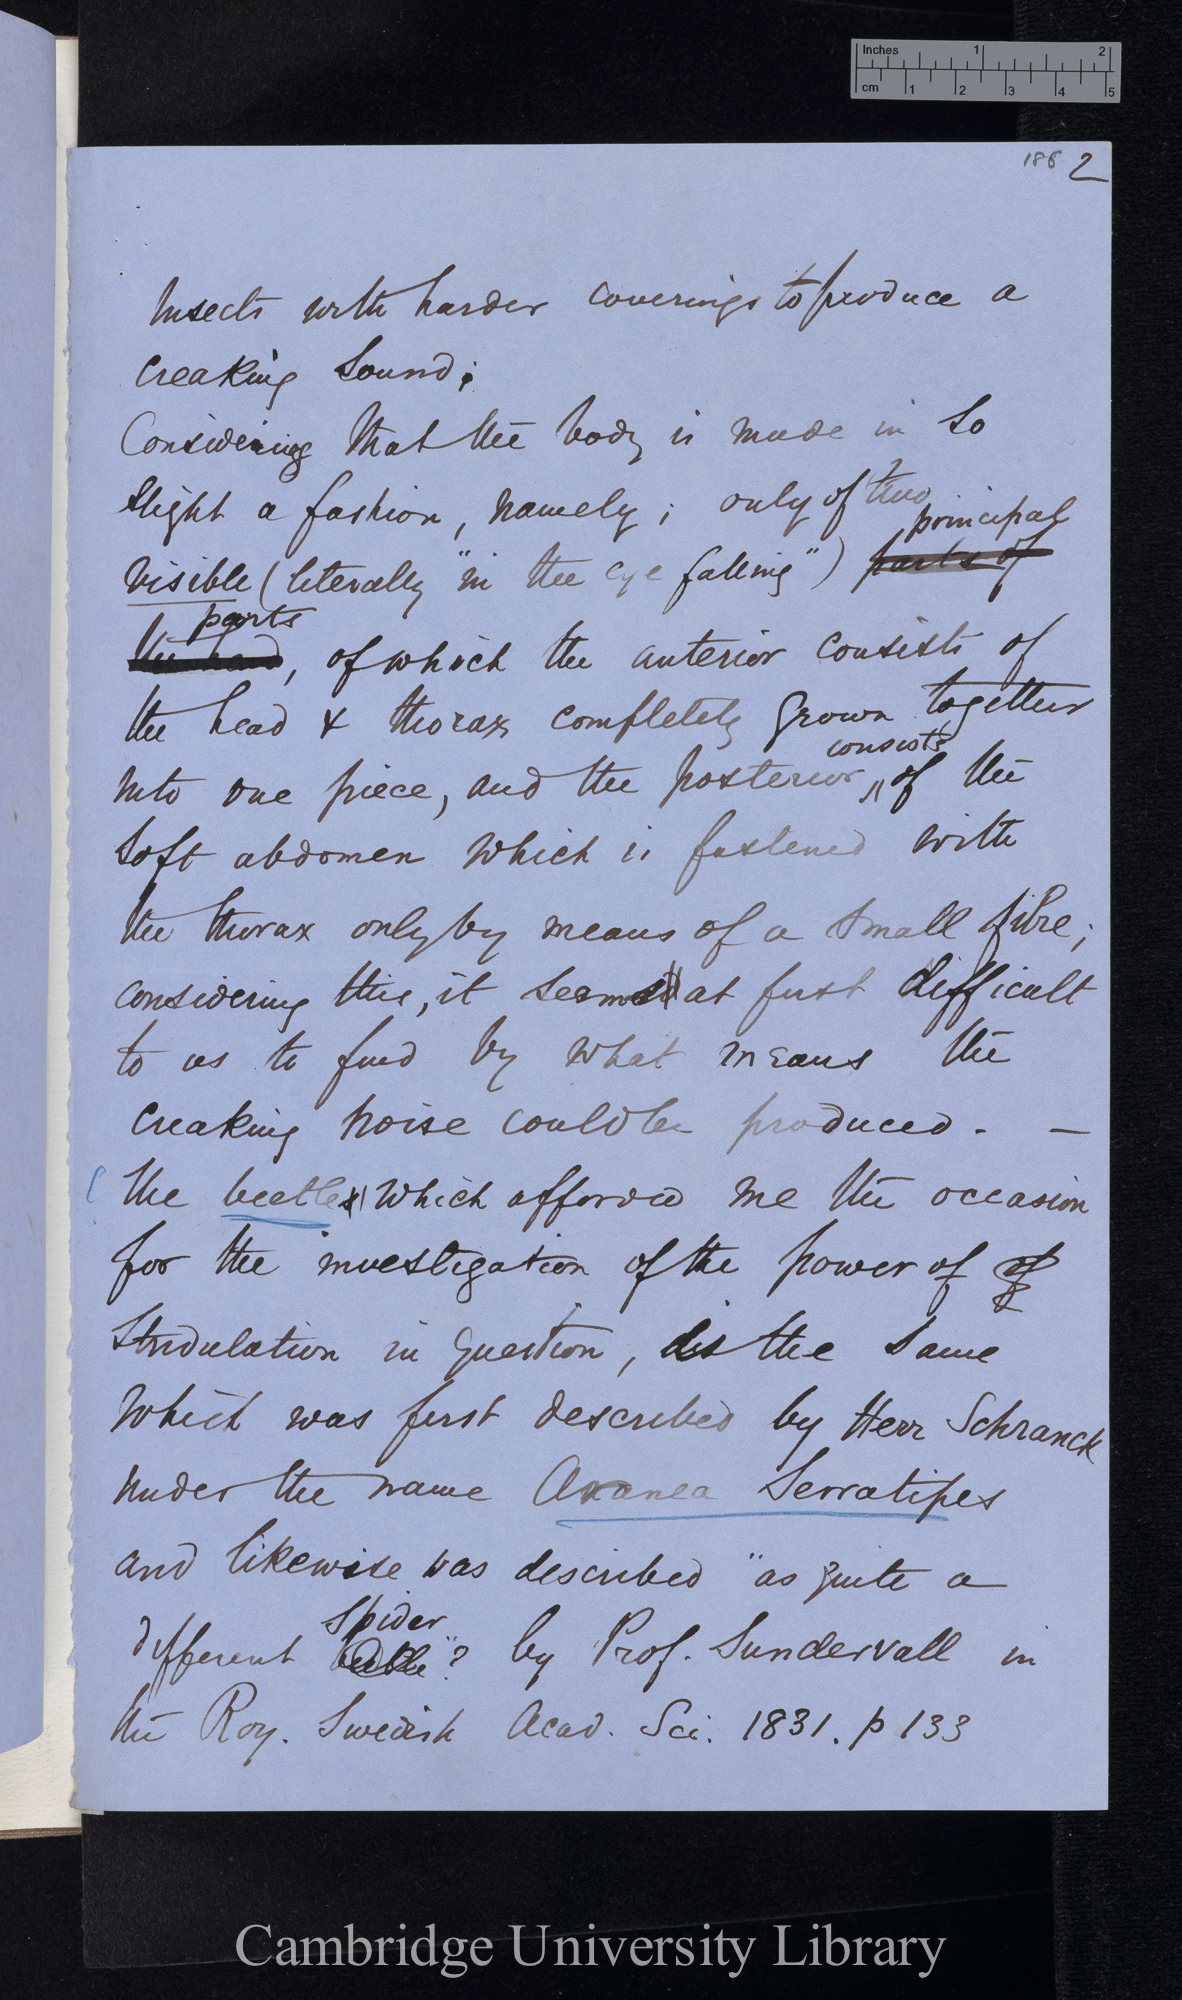 Inches 1 2
cm 1 2 3 4 5
186 2
Insects with harder coverings to produce a
creaking sound;
Considering that the body is made in so
slight a fashion, namely; only of two
principal
visible (literally "in the eye falling") parts of
parts
the hand, of which the anterior consists of
the head & thorax completely grown together
consists
into one piece, and the posterior, of the
soft abdomen which is fastened with
the thorax only by means of a small fibre;
considering this, it seems at first difficult
to us to find by what means the
creaking noise could be produced. —
The beetle which afforded me the occasion
for the investigation of the power of of
Stridulation in question, is the same
which was first described by Herr Schranck
under the name Aranea Serratipes
and likewise was described "as quite a
spider
different beetle"? by Prof. Sundervall in
the Roy. Swedish Acad. Sci. 1831. p 133
Cambridge University Library